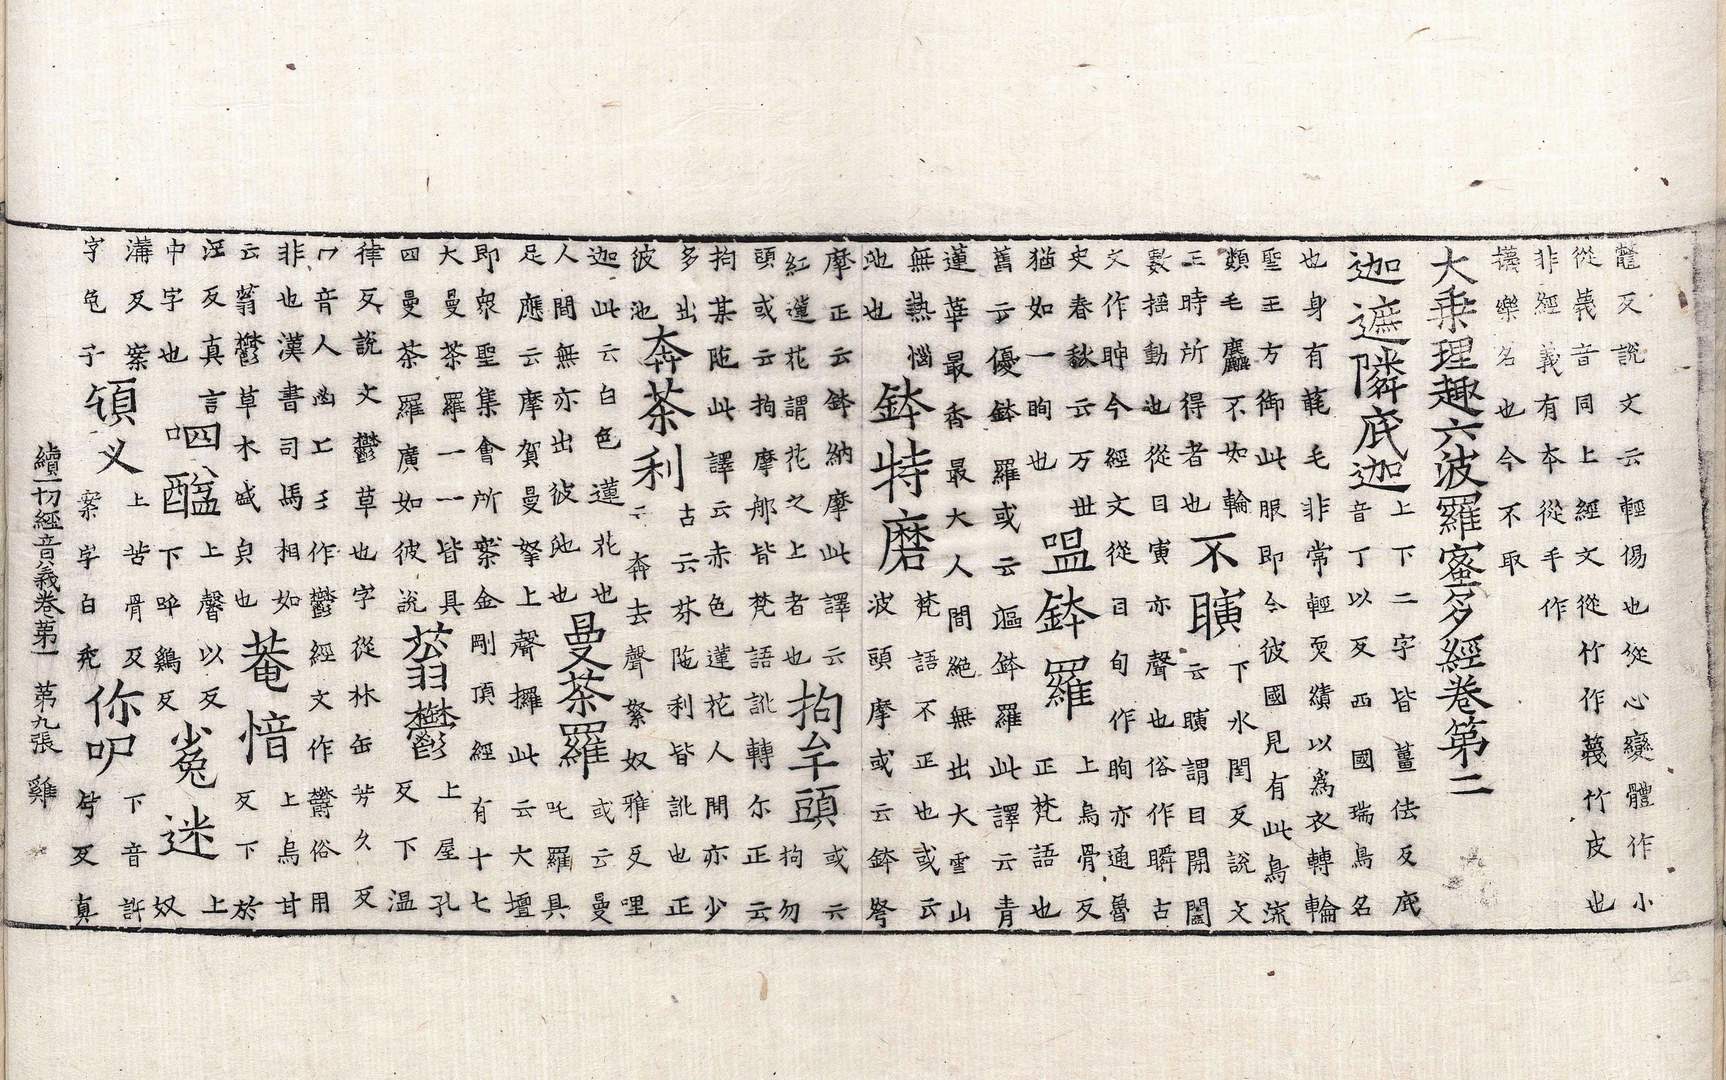 髶反說文云輕傷也從心變體作小
從義音同上經文從竹作篾竹皮也
非經義有本從手作
懱樂名也今不取
大乗理趣六波羅蜜多經卷第二
迦遮隣底迦上下二字皆薑佉反底
音丁以反西國瑞鳥名
也身有毳毛非常輕耎績以為衣轉輪
聖王方御此服即今彼國見有此鳥流
類毛麤不如輪
王時所得者也
不瞚下水閏反說文
云瞚謂目開闔
數揺動也從目寅亦聲也俗作瞬古
文作眒今經文從目旬作眴亦通魯
史春秋云万世
猶如一眴也
嗢鉢羅上烏骨反
正梵語也
舊云優鉢羅或云漚鉢羅此譯云青
蓮華最香最大人間絶無出大雪山
無熱惱
池也
鉢特磨梵語不正也或云
波頭摩或云鉢弩
摩正云鉢納摩此譯云
紅蓮花謂花之上者也
拘牟頭或云
拘勿
頭或云拘摩郍皆梵語訛轉尓正云
拘某陁此譯云赤色蓮花人間亦少
多出
彼池
奔荼利古云芬陁利皆訛也正
云奔去聲拏奴雅反哩
迦此云白色蓮花也
人間無亦出彼池也
曼荼羅或云曼
吒羅具
足應云摩賀曼拏上聲攞此云大壇
即衆聖集會所案金剛頂經有十七
大曼荼羅一一皆具
四曼荼羅廣如彼說
蓊欝上屋孔
反下温
律反說文欝草也字從林缶芳久反
冖音人凶上王作鬱經文作欝俗用
非也漢書司馬相如
云蓊欝草木盛貞也
菴愔上烏甘
反下於
淫反真言
中字也
呬醯上馨以反
下呼鷄反
冤迷上
奴
溝反案
字
頷义上苦骨反
案字白
你呎下音許
反真
續一切經音義卷第一 第九張 雞